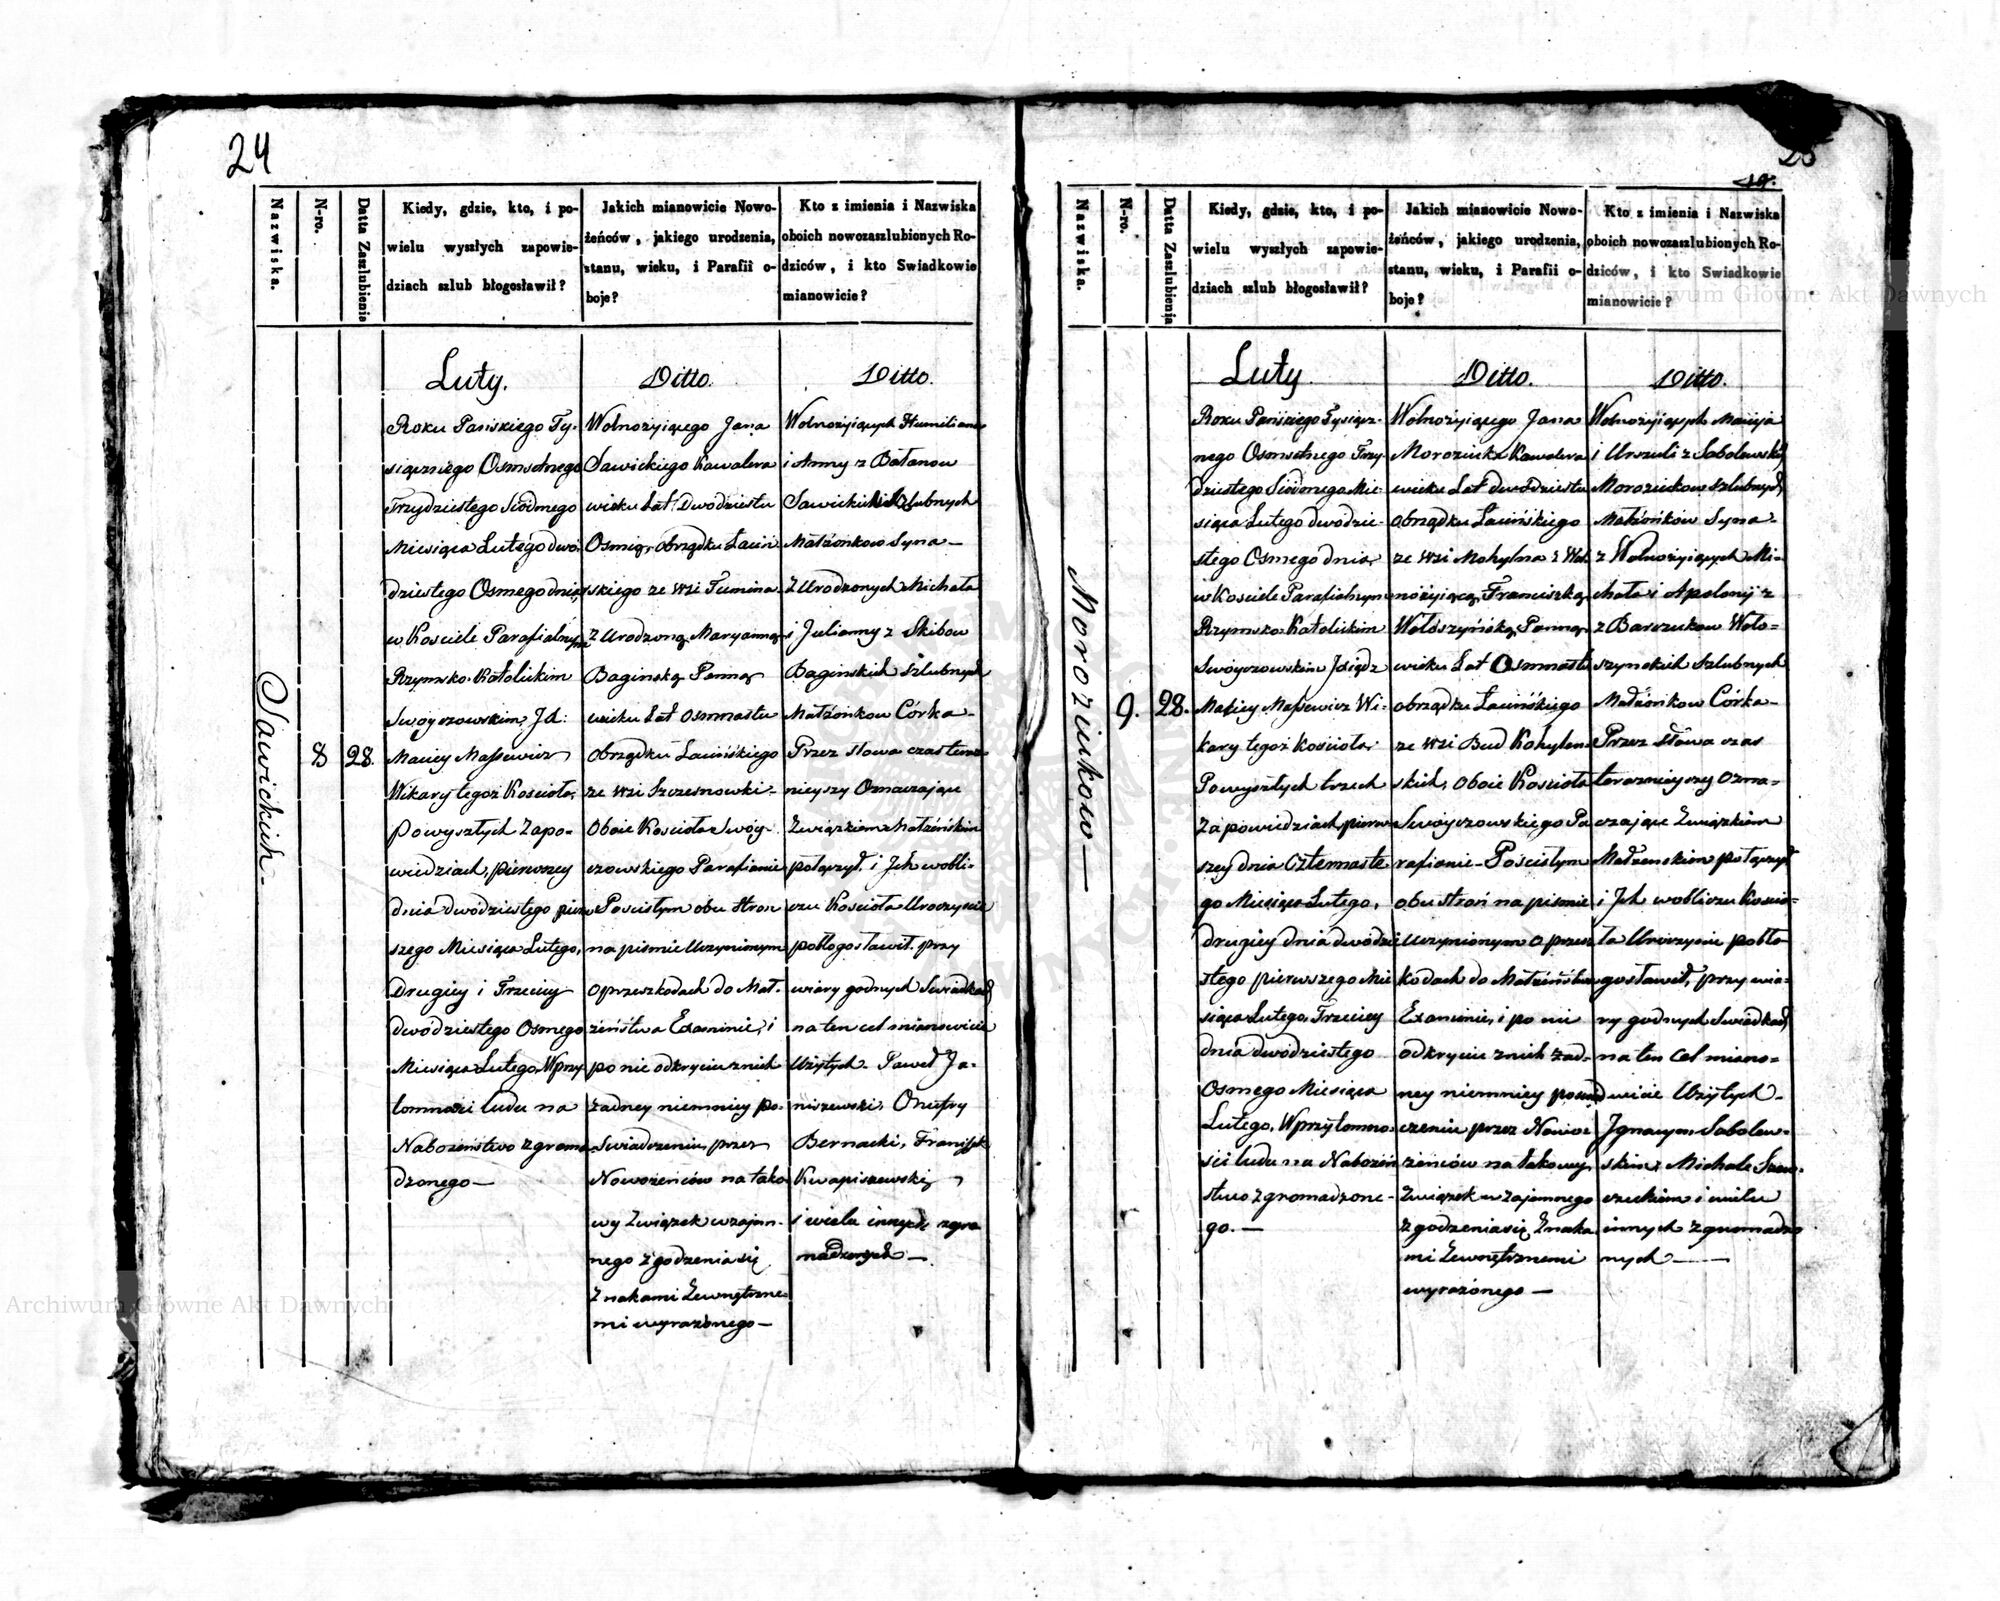 24
Nazwiska.
N-ro.
Datta Zaslubienia
Kiedy, gdzie, kto, i po-
wielu wyszłych zapowie-
dziach szlub błogosławił?
Jakich mianowicie Nowo-
żeńców, jakiego urodzenia,
stanu, wieku, i Parafii o-
boje?
Kto z imienia i Nazwiska
oboich nowozaszlubionych Ro-
dziców, i kto Swiadkowie
mianowicie?
Sawickich -
8
28.
Luty.
Roku Pańskiego Ty-
siącznego Osmsetnego
Trzydziestego Siódmego
Miesiąca Lutego dwó-
dziestego Osmego dnia,
w Kosciele Parafialnym
Rzymsko-Katolickim
Swoyczowskim, Jd:
Maciey Massewicz
Wikary tegoż Kościoła,
po wyszłych Zapo-
wiedziach, pierwszey
dnia dwódziestego pierw-
szego Miesiąca Lutego,
Drugiey i Trzeciey
dwódziestego Osmego
Miesiąca Lutego, Wprzy-
tomności ludu na
Nabożeństwo zgroma-
dzonego —
Ditto.
Wolnożyiącego Jana
Sawickiego Kawalera
wieku Lat Dwódziestu
Osmiu, obrządku Łaciń-
skiego ze wsi Tumina
z Urodzoną Maryanną
Baginską Panną
wieku Lat Osmnastu
Obrządku Łacińskiego
ze wsi Szczesnowki -
Oboie Kościoła Swóy-
czowskiego Parafianie
Po scisłym obu stron
na pismie Uczynionym
o przeszkodach do Mał-
żeństwa Examinie, i
po nie odkryciu z nich
żadney niemniey po-
Swiadczeniu, przez
Nowożeńców na tako-
wy Związek wzajem-
nego zgodzenia się
Znakami Zewnętrzne-
mi wyrażonego —
Ditto.
Wolnożyiących
i Anny z Bałanow
Sawickich Szlubnych
Małżonkow Syna —
Z Urodzonych Michała
i Julianny z Skibow
Baginskich Szlubnych
Małżonkow Córka -
Przez słowa czas teraz-
nieyszy Oznaczające
Związkiem Małżeńskim
połączył, i Jch wobli-
czu Kościoła Uroczyscie
pobłogosławił, przy
wiary godnych Swiadkach
na ten cel mianowicie
Użytych - Paweł Ja-
niszewski, Onufry
Bernacki,
Kwapiszewski,
i wielu innych zgro-
madzonych —
19.
Nazwiska.
N-ro.
Datta Zaslubienia
Kiedy, gdzie, kto, i po-
wielu wyszłych zapowie-
dziach szlub błogosławił?
Jakich mianowicie Nowo-
żeńców, jakiego urodzenia,
stanu, wieku, i Parafii o-
boje?
Kto z imienia i Nazwiska
oboich nowozaszlubionych Ro-
dziców, i kto Swiadkowie
mianowicie?
Moroziukow —
9.
28.
Luty
Roku Pańskiego Tysiącz-
nego Osmsetnego Trzy-
dziestego Siódmego Mie-
siąca Lutego dwódzie-
stego Osmego dnia,
w Kosciele Parafialnym
Rzymsko-Katolickim
Swóyczowskim Jxiądz
Maciey Massewicz Wi-
kary tegoż Kościoła,
Po wyszłych trzech
Zapowiedziach, pierw-
szey dnia Czternaste-
go Miesiąca Lutego,
drugiey dnia dwódzie-
stego pierwszego Mie-
siąca Lutego, Trzeciey
dnia dwódziestego
Osmego Miesiąca
Lutego, Wprzytomno-
ści ludu na Nabożeń-
stwo zgromadzone-
go. —
Ditto.
Wolnożyiącego Jana
Moroziuka Kawalera
wieku Lat dwódziestu
Obrządku Łacińskiego
ze wsi Mohylna z Wol-
nożyiącą Franciszką
Wołoszyńską Panną
wieku Lat Osmnastu
obrządku Łacińskiego
ze wsi Bud Kohylen-
skich, oboie Kościoła
Swóyczowskiego Pa-
rafianie - Po scisłym
obu stron na pismie
Uczynionym o przesz-
kodach do Małżeństwa
Examinie, i po nie
odkryciu z nich żad-
ney niemniey poswiad-
czeniu przez Nowo-
żeńców na takowy
Związek wzajemnego
zgodzenia się Znaka-
mi Zewnętrznemi
wyrażonego —
Ditto.
Wolnożyiących Macieja
i Urszuli z Sobolewskich
Moroziukow Szlubnych
Małżonków Syna -
z Wolnożyiących Mi-
chała i Apolonij z
z Barczukow Woło-
szynskich Szlubnych
Małżonkow Córka -
Przez Słowa czas
teraznieyszy Ozna-
czające Związkiem
Małżenskim połączył
i Jch wobliczu Kościo-
ła Uroczyscie pobło-
gosławił, przy wia-
ry godnych Swiadkach
na ten cel miano-
wicie Użytych -
Jgnacym Sobolew-
skim, Michale
i wielu
innych zgromadzo-
nych —
Archiwum Główne Akt Dawnych
Archiwum Główne Akt Dawnych